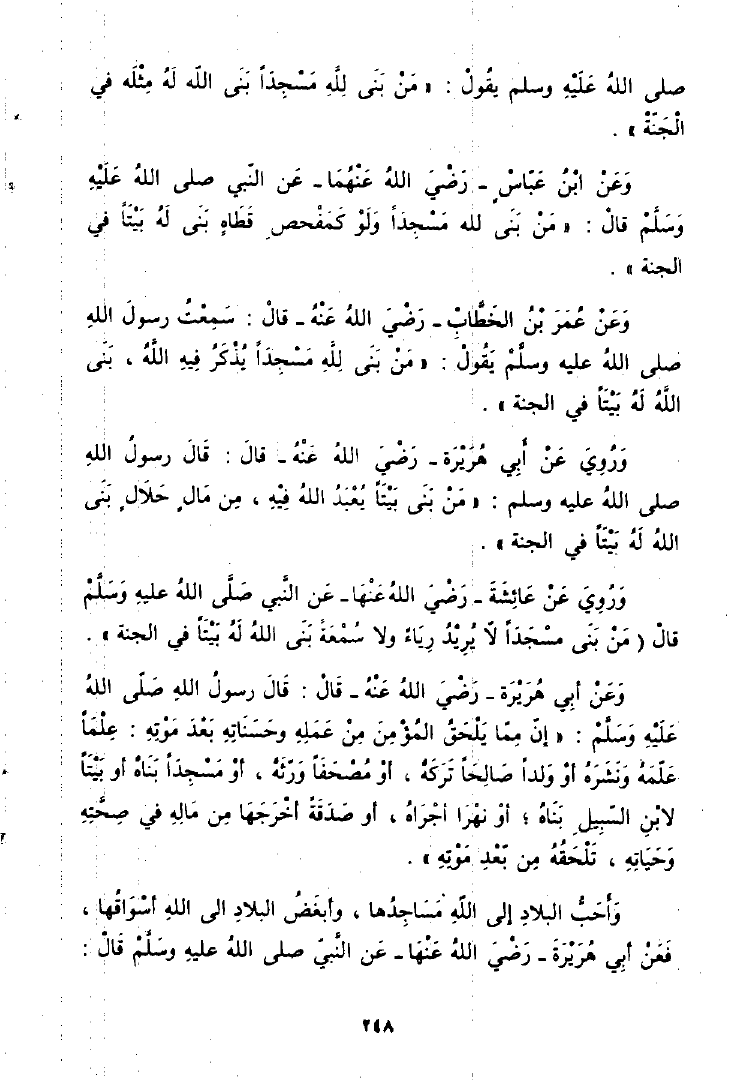 صلى اللهُ عَلَيْهِ وسلم يقُولْ : « مَنْ بَنَى لِلَّهِ مَسْجِدَاً بَنَى اللّه لَهُ مِثْلَه في
الْجَنّةْ » .
وَعَنْ ابْنُ عَبّاسْ ٍ ـ رَضْيَ اللهُ عَنْهُمَا ـ عَن النّبي صلى اللهُ عَلَيْهِ
وَسَلَّمْ قالْ : « مَنْ بَنَى لله مَسْجِدَاً وَلَوْ كَمَفْحص ِ قَطَاهٍ بَنى لَهُ بَيْتَاً في
الجنة » .
وَعَنْ عُمَرَ بْنُ الخَطَّابْ ـ رَضْيَ اللهُ عَنْهُ ـ قالْ : سَمِعْتُ رسولَ اللهِ
صلى اللهُ عليه وسلَّمْ يَقُولْ : « مَنْ بَنَى لِلَّهِ مَسْجِدَاً يُذْكَرُ فيهِ اللَّهُ ، بَنَى
اللَّهُ لَهُ بَيْتَاً في الجنة » .
وَرُوِيَ عَنْ أَبي هُرَيْرَة ـ رَضْيَ اللهُ عَنْهُ ـ قالَ : قَالَ رسولُ اللهِ
صلى اللهُ عليه وسلم : « مَنْ بَنَى بَيْتَاً يُعْبَدُ اللهُ فِيْهِ ، مِن مَال ٍ حَلَال ٍ بَنَى
اللهُ لَهُ بَيْتَاً في الجنة » .
وَرُوِيَ عَنْ عَائِشَةَ ـ رَضْيَ اللهُ عَنْهَا ـ عَن النَّبي صَلَّى اللهُ عليهِ وَسَلَّمْ
قالْ ( مَنْ بَنَى مسْجَدَاً لاّ يُرِيْدُ رِيَاءً ولا سُمْعَةً بَنَى اللهُ لَهُ بَيْتَاً في الجنة » .
وَعَن أبي هُرَيْرَة ـ رَضْيَ اللهُ عَنْهُ ـ قَالْ : قَالَ رسولُ اللهِ صَلّى اللهُ
عَلَيْهِ وَسَلَّمْ : « إنّ مِمّا يَلْحَقُ المُؤْمِنَ مِنْ عَمَلِهِ وحَسَنَاتِهِ بَعْدَ مَوْتِهِ : عِلْمَاً
عَلّمَهُ وَنَشَرَهُ أوْ وَلداً صَالِحَاً تَرَكَهُ ، أوْ مُصْحَفَاً وَرّثَهُ ، أوْ مَسْجِدَاً بَنَاهُ أو بَيْتَاً
لابْنِ السّبِيل ِ بَنَاهُ ؛ أوْ نَهْرَا أجْرَاهُ ، أو صَدَقَةً أخْرَجَهَا مِن مَالِهِ في صِحَّتِهِ
وَحَيَاتِهِ ، تَلْحَقُهُ مِن بّعْدِ مَوْتِهِ » .
وَأَحَبُّ البلادِ إلى اللَّهِ مَسَاجِدُها ، وأبغَضُ البلادِ الى اللهِ أسْوَاقُها ،
فَعَنْ أبي هُرَيْرَةَ ـ رَضْيَ اللهُ عَنْهَا ـ عَن النَّبيّ صلى اللهُ عليهِ وسَلَّمْ قَالْ :
٢٤٨